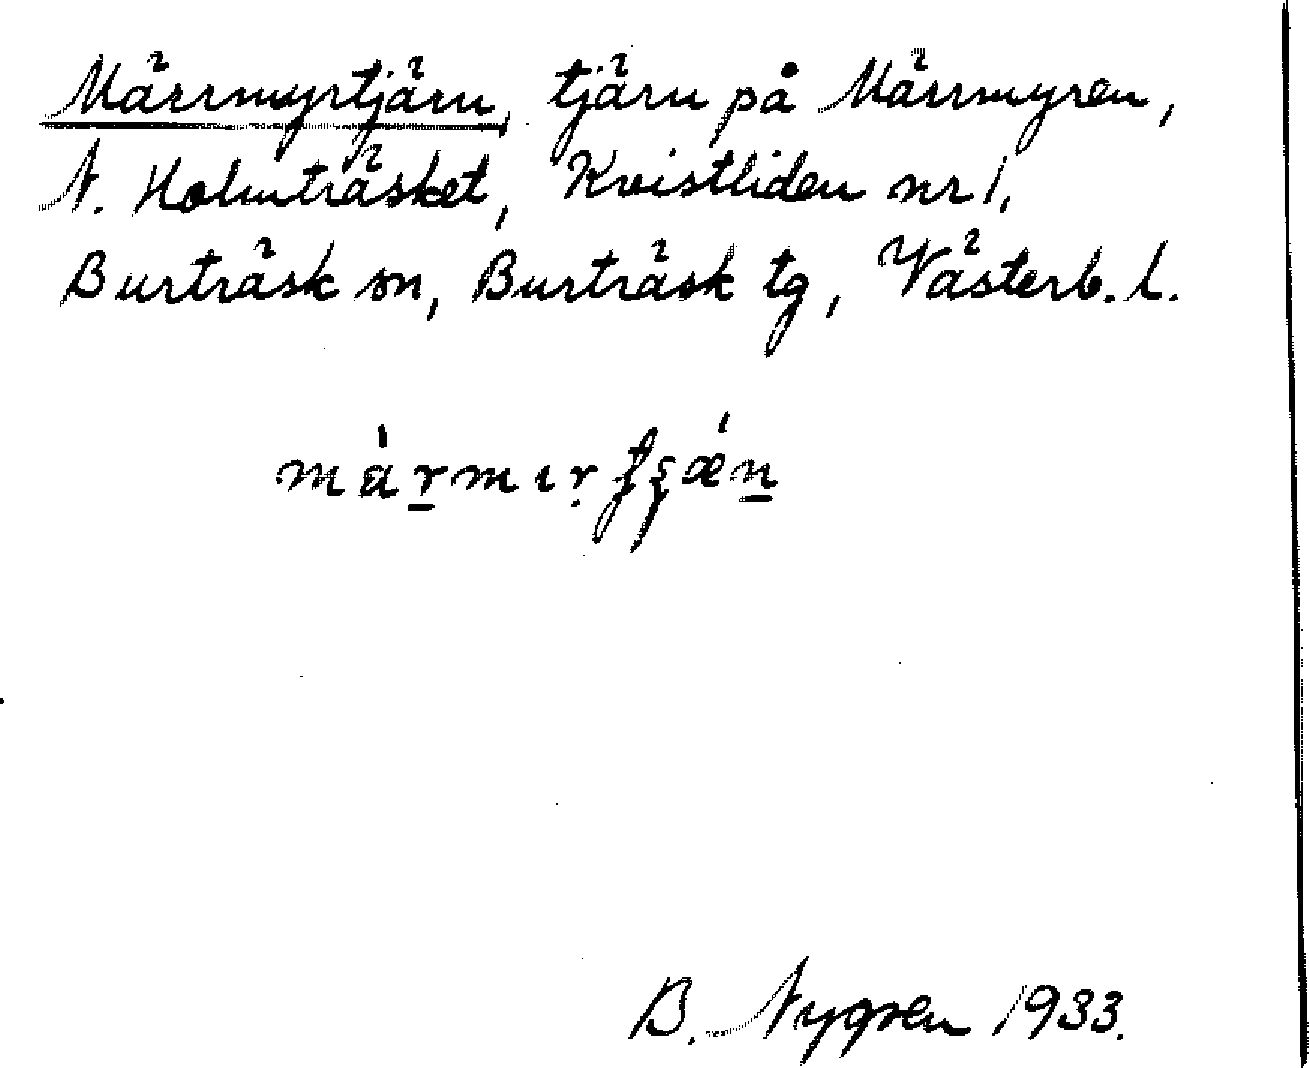 Märrmyrtjärn, tjärn på Märrmyren,
N. Holmträsket, Kvistliden nr 1,
Burträsk sn, Burträsk tg, Västerb. l.
B. Nygren 1933.